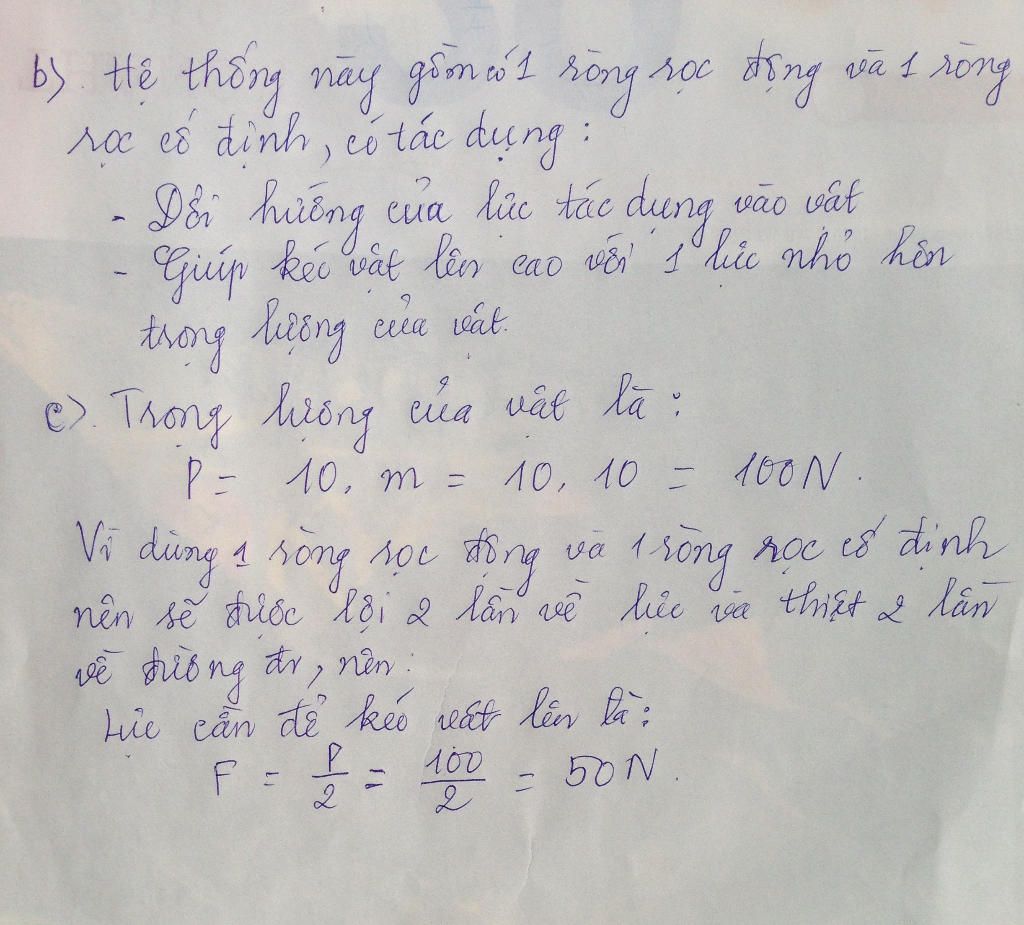 b). Hệ thống này gồm có 1 ròng rọc động và 1 ròng
rọc cố định, có tác dụng:
- Đổi hướng của lực tác dụng vào vật
- Giúp kéo vật lên cao với 1 lực nhỏ hơn
trọng lượng của vật.
c). Trọng lượng của vật là:
P = 10. m = 10. 10 = 100N.
Vì dùng 1 ròng rọc động và 1 ròng rọc cố định
nên sẽ được lợi 2 lần về lực và thiệt 2 lần
về đường đi, nên:
Lực cần để kéo vật lên là:
F = P/2 = 100/2 = 50N.